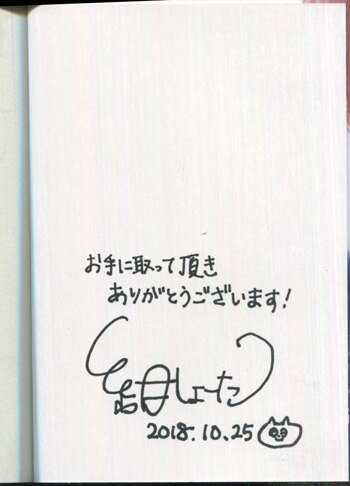 お手に取って頂き
ありがとうございます!
しょーた
2018.10.25